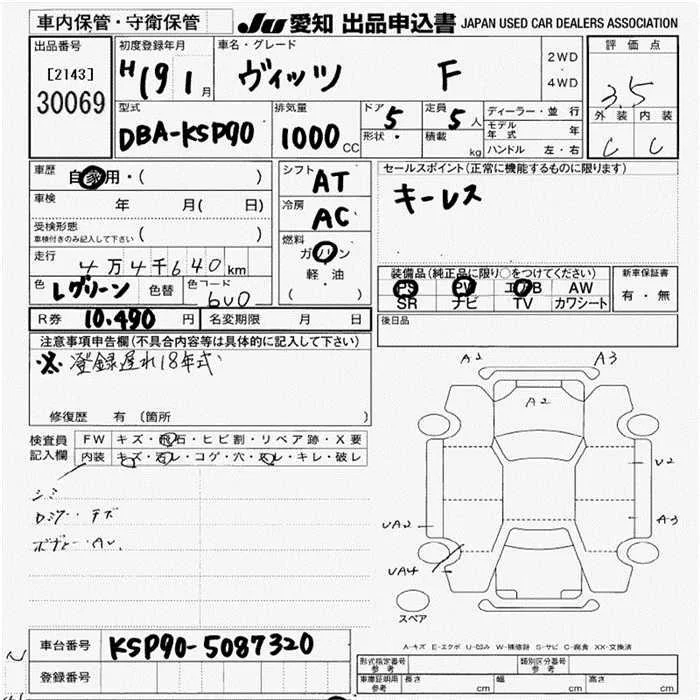 車内保管・守衛保管 JU 愛知 出品申込書 JAPAN USED CAR DEALERS ASSOCIATION
出品番号 初度登録年月 車名・グレード 2WD 評価点
[2143] H 19 1月 ヴィッツ F 4WD 3.5
30069 型式 排気量 ドア 5 定員 5人 ディーラー・並行 外装 内装
DBA-KSP90 1000CC 形状・ 積載 kg モデル年式 年 C C
ハンドル 左・右
車歴 自家用・( ) シフト AT セールスポイント(正常に機能するものに限ります)
車検 年 月( 日) 冷房 AC キーレス
受検形態 ( )
車検付きのみ記入して下さい
燃料 ガソリン
走行 4万4千640km 軽・油 装備品(純正品に限り○をつけてください) 新車保証書
( ・ ) PS PW エアB AW
色 Lグリーン 色替 色コード 6U0 SR ナビ TV カワシート 有・無
R券 10.490円 名変期限 月 日 後日品
注意事項申告欄(不具合内容等は具体的に記入して下さい)
※登録遅れ18年式
修復歴 有 (箇所
検査員 FW キズ・飛石・ヒビ割・リペア跡・X要
記入欄 内装 キズ・汚レ・コゲ・穴・スレ・キレ・破レ
シミ
A1 A3
A2
U2
A3
UA2
UA4
スペア
車台番号 KSP90-5087320
A-キズ E-エクボ U-凹み W-補修跡 S-サビ C-腐食 XX-交換済
登録番号
形式指定番号 参考 類別区分番号 参考
車庫証明用 参考 長さ cm 幅 cm 高さ cm